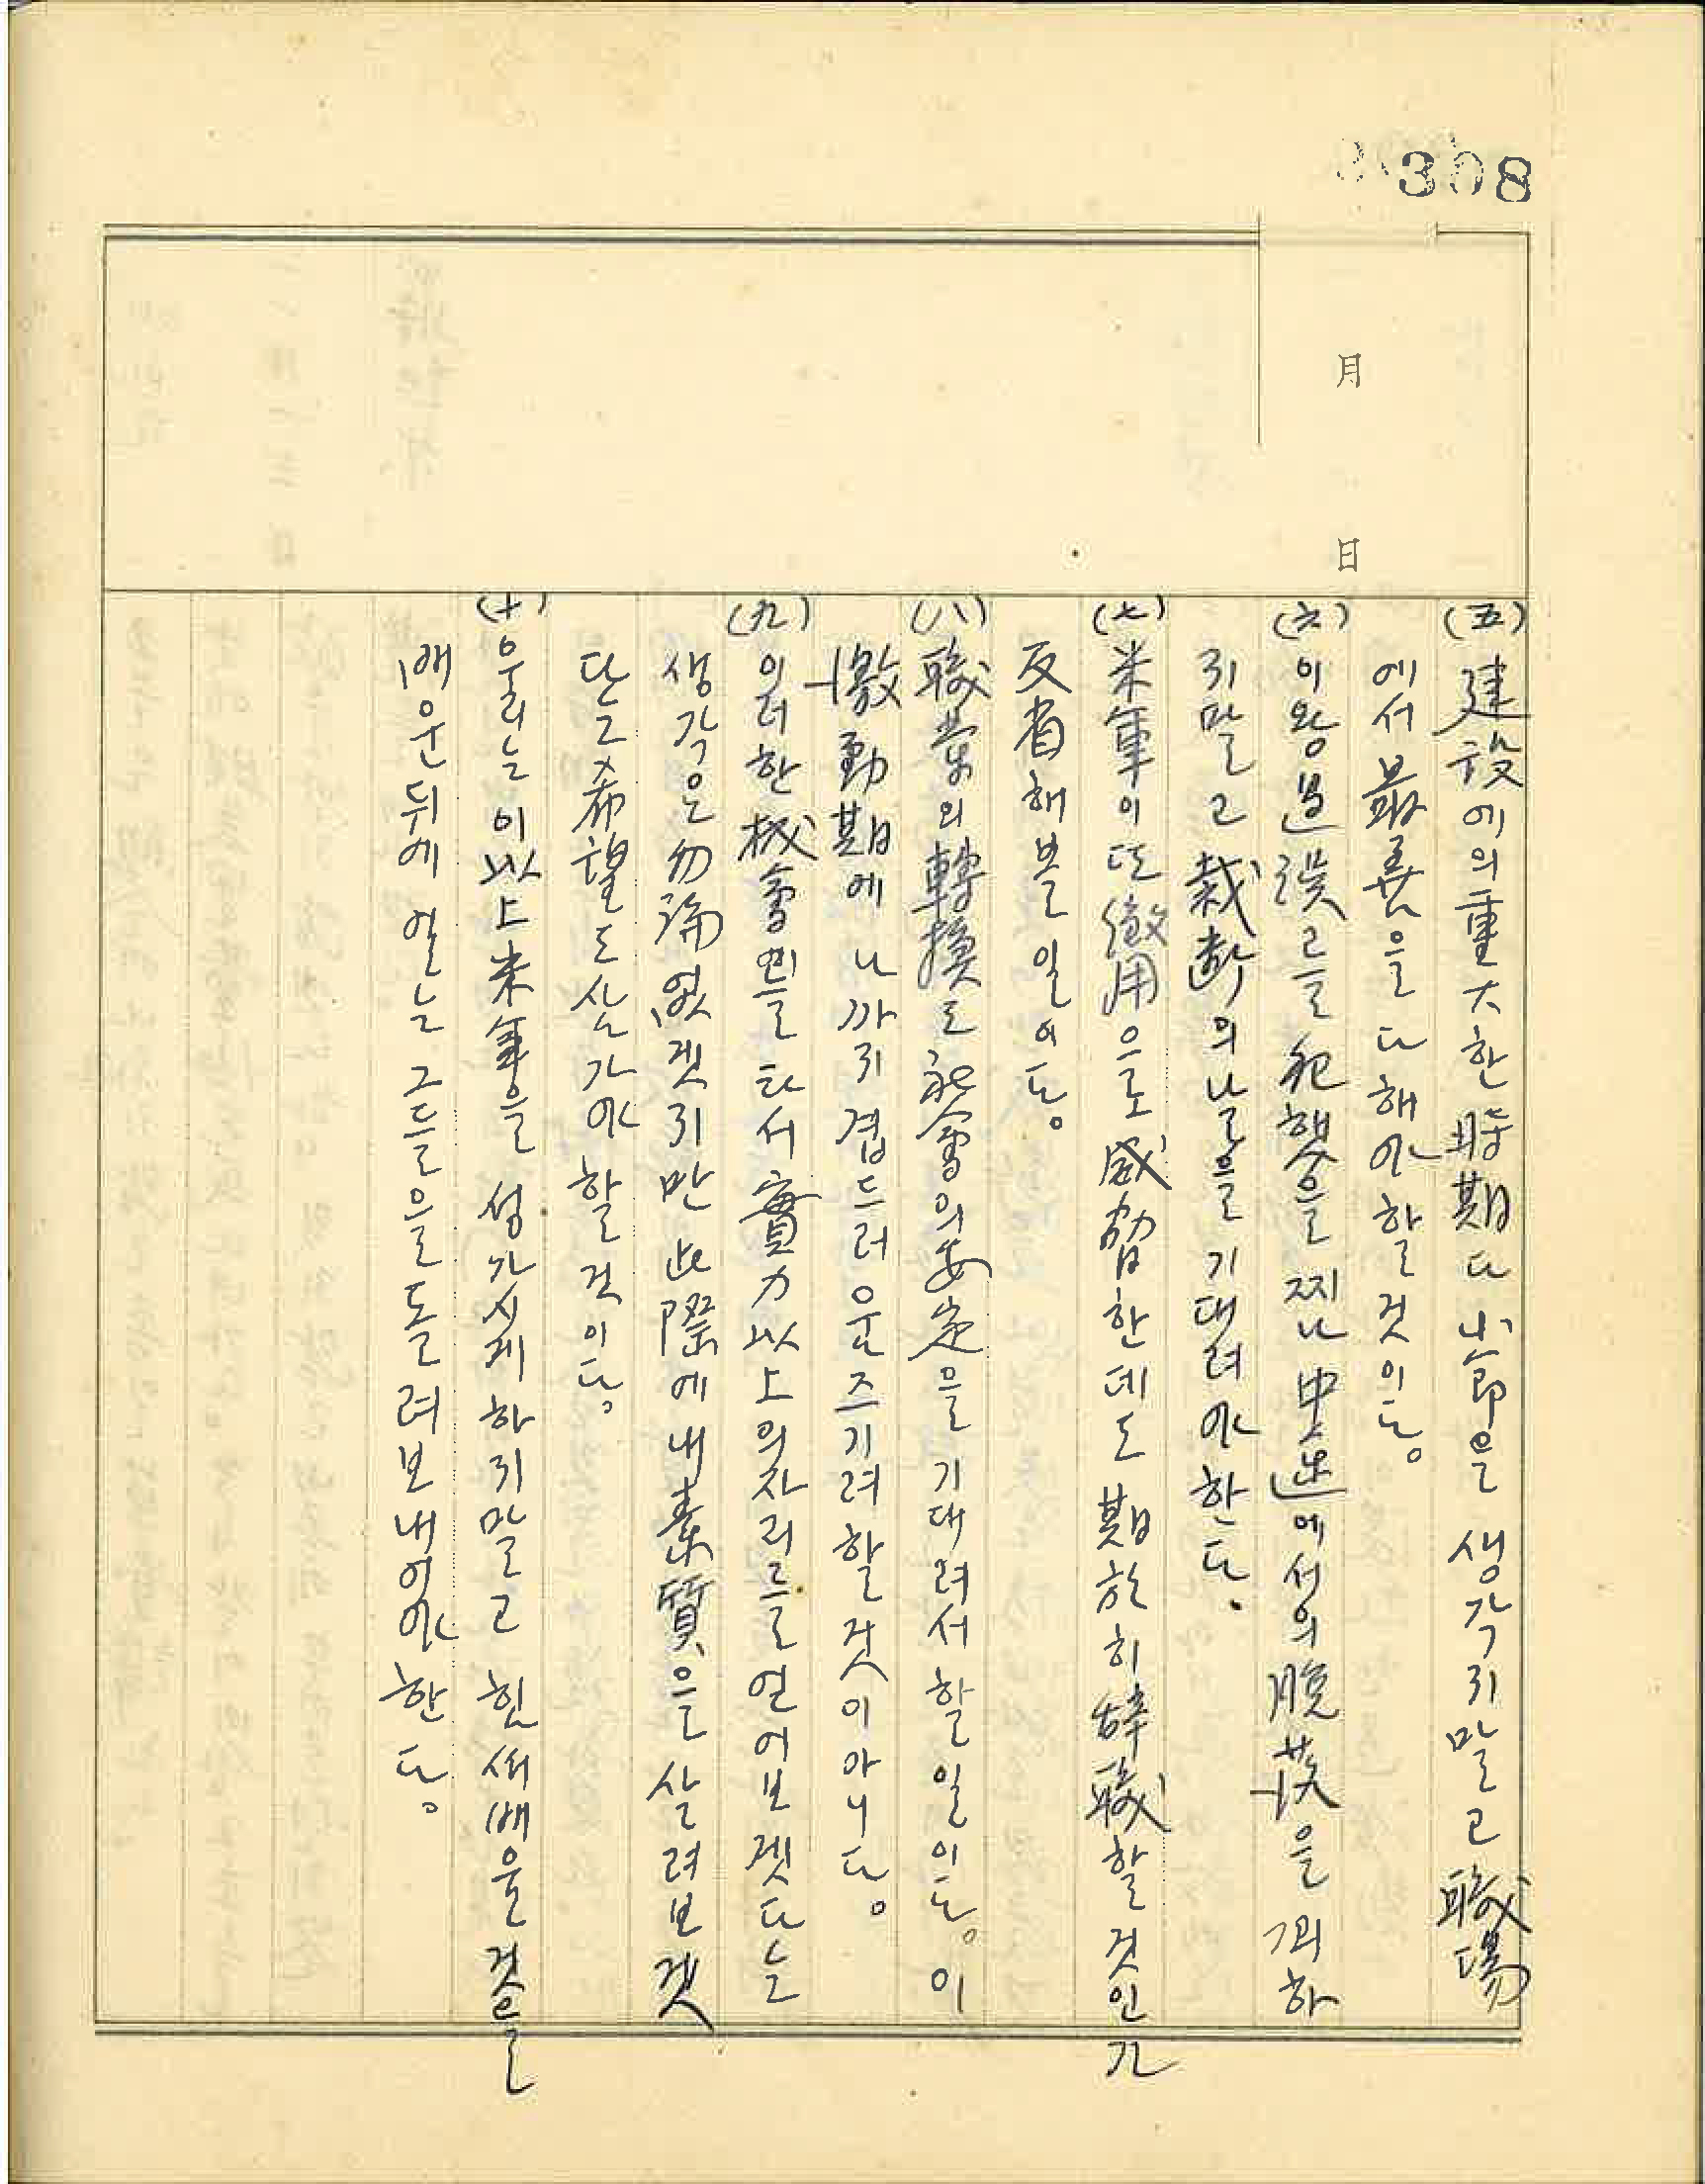 308
月 日
(五) 建設에의 重大한 時期다 小節을 생각지말고 職場
에서 最善을 다해야할것이다。
(六) 이왕 過誤를 犯했을찌나 中途에서의 脫落을 꾀하
지말고 裁斷의 날을 기대려야한다.
(七) 米軍이 또 徵用으로 威脅한데도 期於히 辞職할것인가
反省해볼일이다。
(八) 職業의 轉換도 社會의 安定을 기대려서할일이다。 이
激動期에 나까지 겹드러 운즈기려할것이아니다。
(九) 이러한 機會를 타서 實力以上의 자리를 얻어보겟다는
생각은 勿論 없겟지만 此際에 내 素質을 살려보겟
단 그 希望도 삼가야할것이다。
(十) 우리는 이 以上 米軍을 성가시게하지말고 힘써 배울것을
배운뒤에 얼는 그들을 돌려보내어야한다。